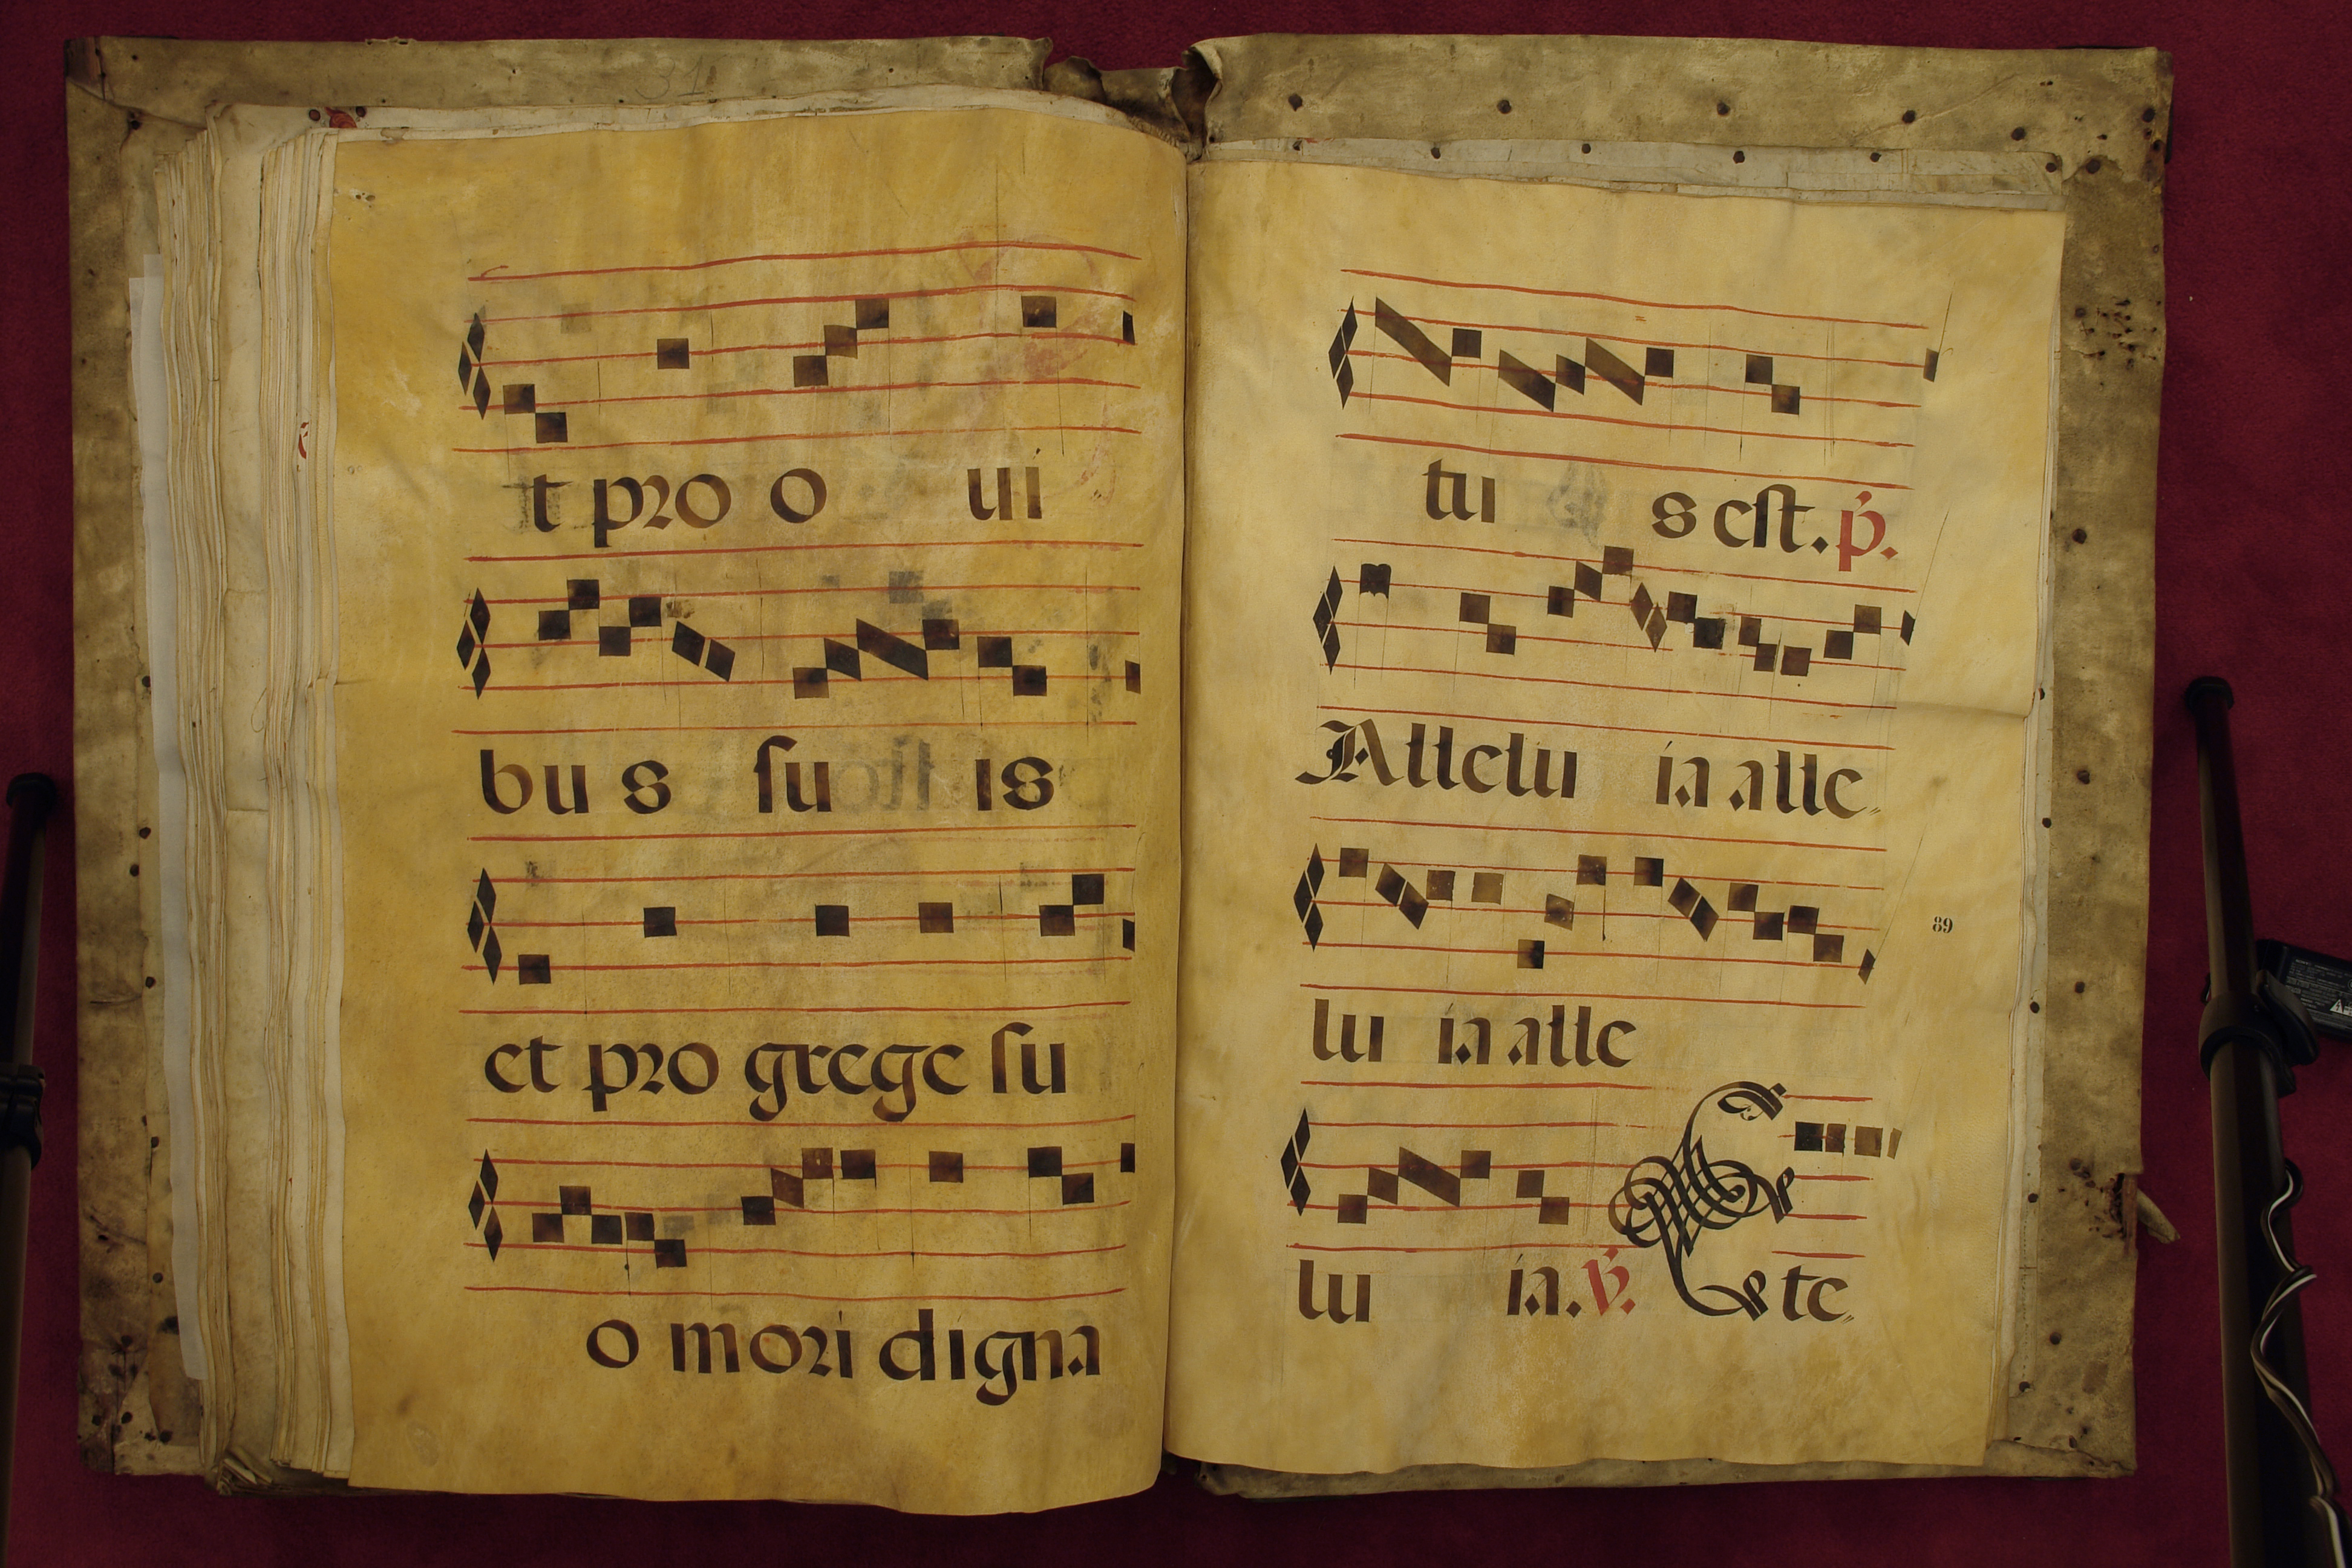 t pro o ui
bus suis
et pro grege su
o mori digna
tus est. p.
Allelu ia alle
lu ia alle
89
lu ia. v. Et e te